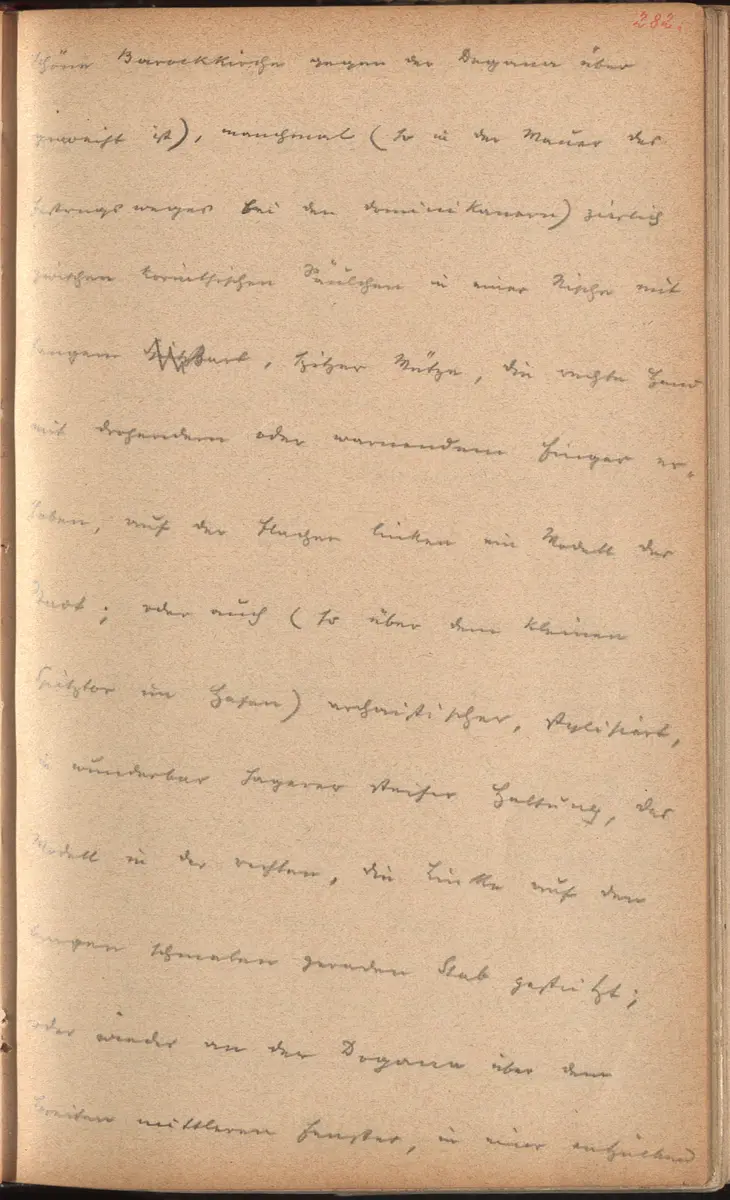 282.
schöne Barockkirche gegen der Dogana über
geweiht ist), manchmal (so in der Mauer des
Festungsweges bei den Dominikanern) zierlich
zwischen korinthischen Säulchen in einer Nische mit
langem Spitzbart, spitzer Mütze, die rechte Hand
mit drohendem oder warnendem Finger er-
hoben, auf der flachen linken ein Modell der
Stadt; oder auch (so über dem kleinen
Spitztor im Hafen) archaistischer, stylisiert,
in wunderbar hagerer steifer Haltung, das
Modell in der rechten, die Linke auf den
langen schmalen geraden Stab gestützt;
oder wieder an der Dogana über dem
breiten mittleren Fenster, in einer entzückend